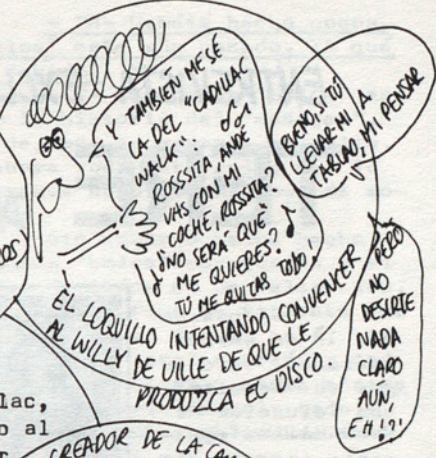 Y TAMBIEN ME SÉ
LA DEL "CADILLAC
WALK".
ROSSSITA ANDE
VAS CON MI
COCHE, ROSSSITA?
¿NO SERÁ QUÉ
ME QUIERES?
TÚ ME QUITAS TODO!
BUENO, SI TÚ
LLEVAR-MI A
TABLAO, MI PENSAR
PERO
NO
DESIRTE
NADA
CLARO
AÚN,
EH!?!
EL LOQUILLO INTENTANDO CONVENCER
AL WILLY DE VILLE DE QUE LE
PRODUZCA EL DISCO.
OS)
lac,
o al
CREADOR DE LA